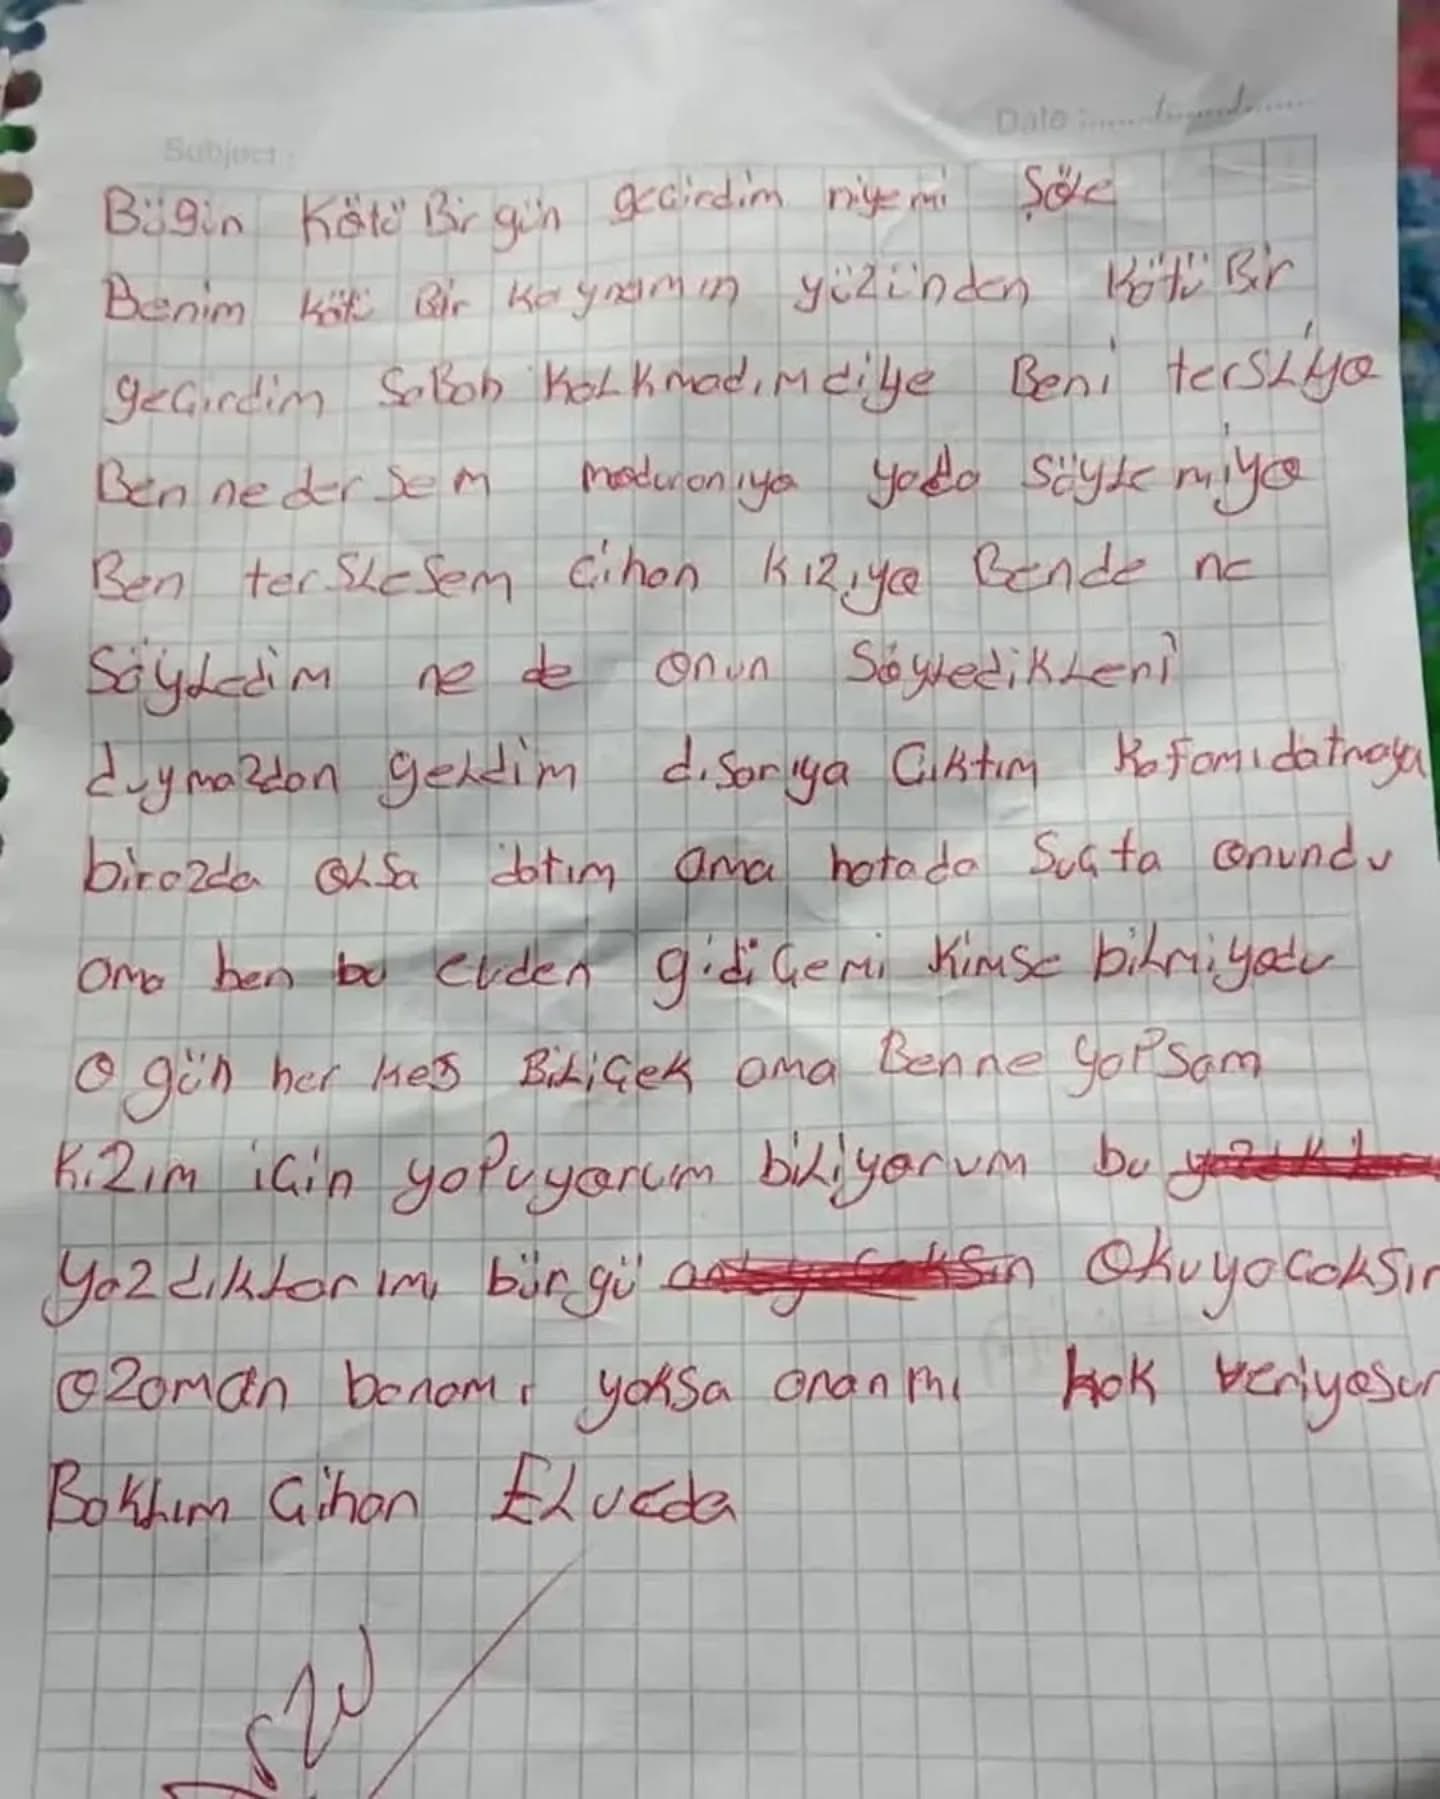 Subject: Date:
Bügin Kötü Bir gün geçirdim niyemi Şöle
Benim kötü Bir kaynamın yüzünden Kötü Bir
geçirdim SaBah KaLkmadım diye Beni tersLiya
Ben ne der sem yada söyLemiya
Ben tersLesem Cihan kızıya Bende ne
SöyLedim ne de onun SöyLedikLeni
duymazdan geLdim dısarıya Çıktım Kafamıdatmaya
birazda oLsa datım ama hatada Suçta onundu
ama ben bu evden gidiçemi kimse biLmiyadu
O gün her kes BiLiçek ama Ben ne yaPsam
Kızım için yaPuyorum biLiyorum bu
YazdıkLarımı bürgü Okuyacaksın
ozaman banamı yoksa onanmı hak veriyosun
BakLım Cihan ELveda